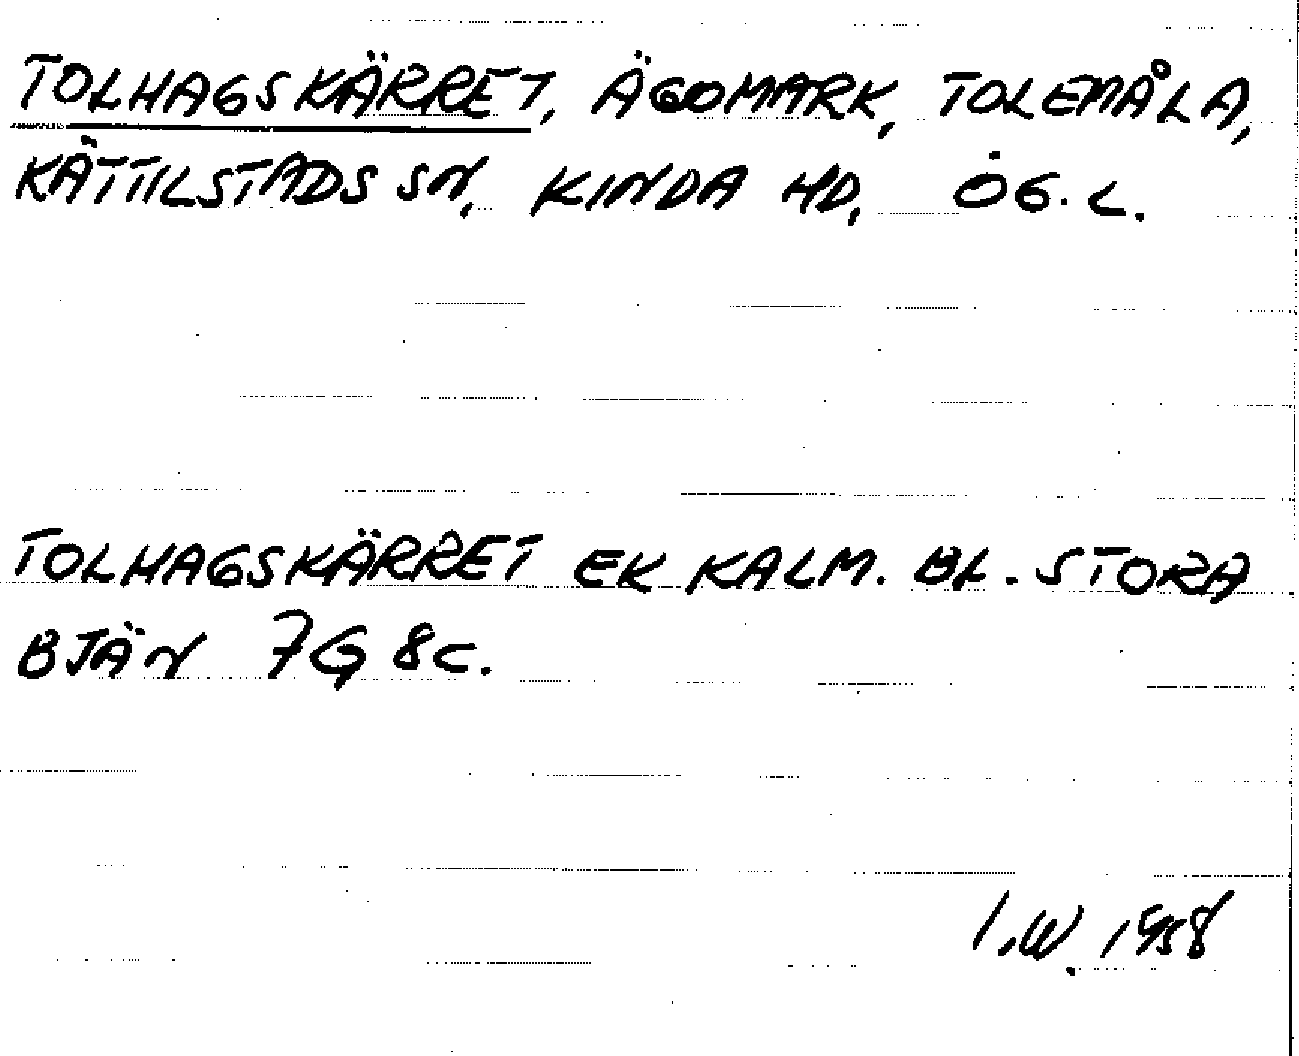 TOLHAGSKÄRRET, ÄGOMARK, TOLEMÅLA,
KÄTTILSTADS SN, KINDA HD, ÖG.L.
TOLHAGSKÄRRET EK KALM. BL. STORA
BJÄN 7G 8C.
I.W. 1958